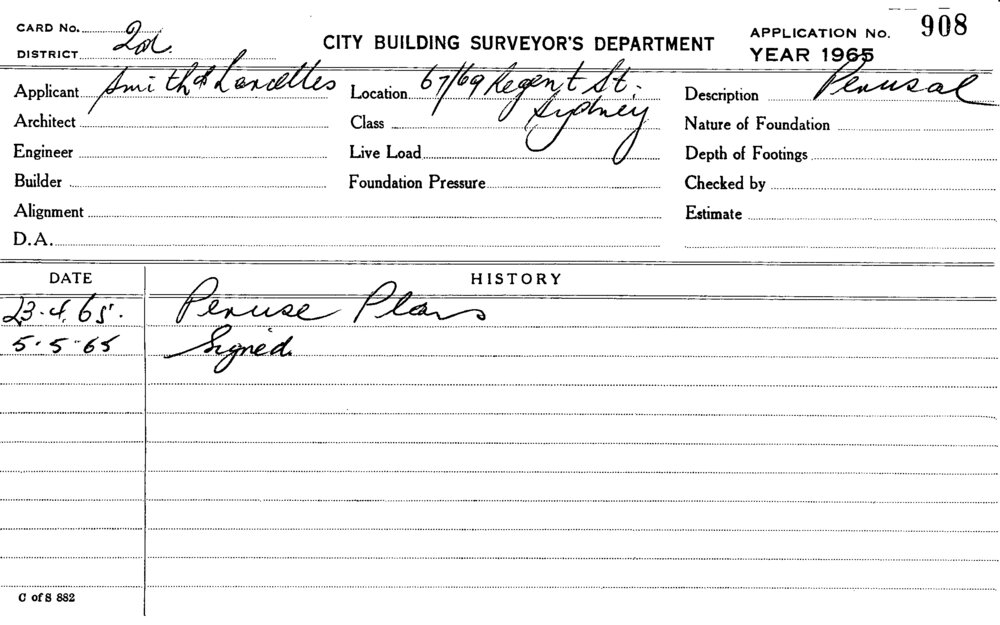 CARD No.
DISTRICT 2a.
CITY BUILDING SURVEYOR'S DEPARTMENT
APPLICATION No. 908
YEAR 1965
Applicant Smith &
Location 67/69 Regent St.
Sydney
Description Perusal
Architect
Class
Nature of Foundation
Engineer
Live Load
Depth of Footings
Builder
Foundation Pressure
Checked by
Alignment
Estimate
D.A.
DATE HISTORY
23.4.65. Peruse Plans
5.5.65 Signed.
C of S 882